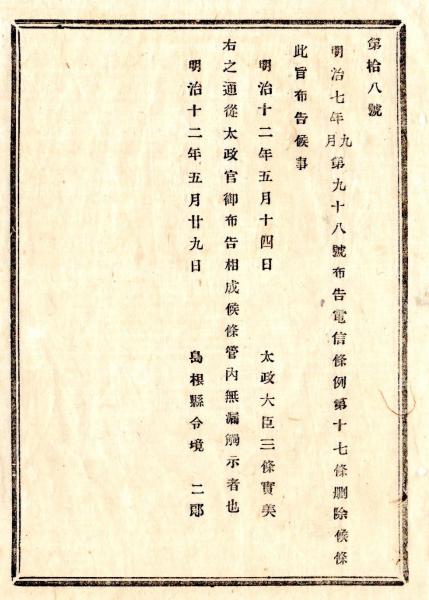 第拾八號
明治七年九月第九十八號布告電信條例第十七條刪除候條
此旨布告候事
明治十二年五月十四日 太政大臣三條實美
右之通從太政官御布告相成候條管內無漏觸示者也
明治十二年五月廿九日 島根縣令境 二郎